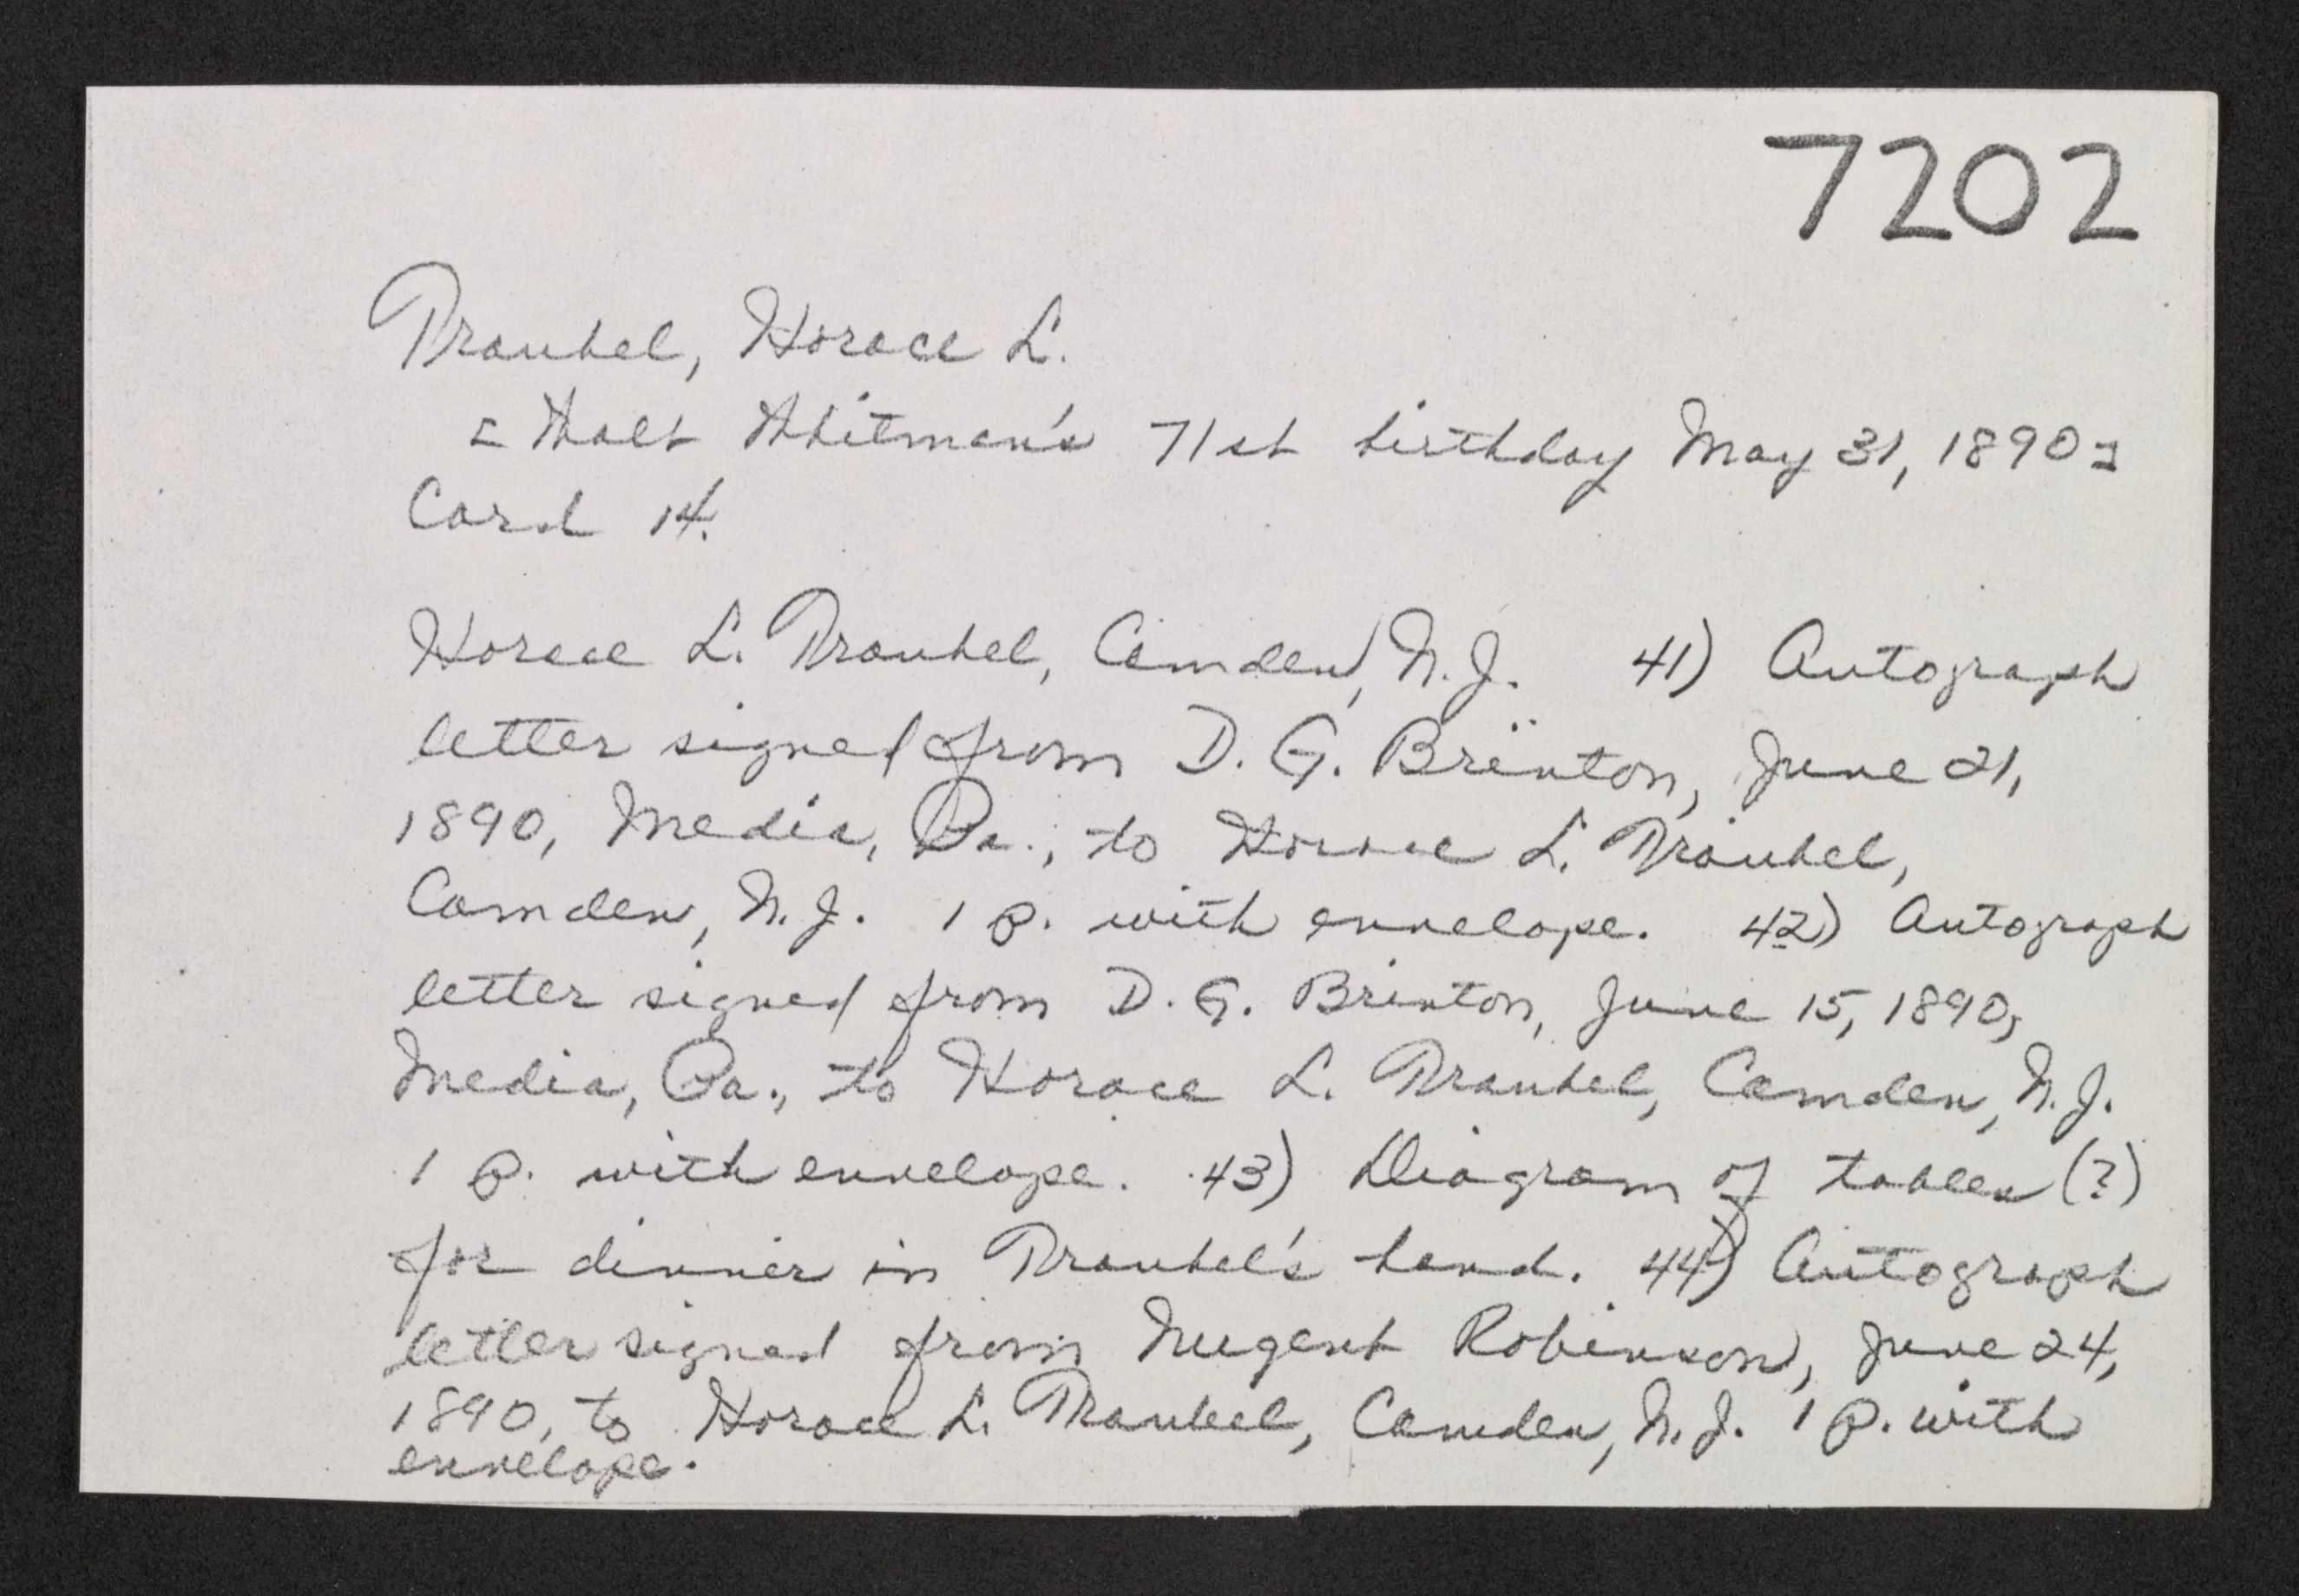 7202
Traubel, Horace L.
[Walt Whitman's 71st birthday May 31, 1890]
Card 14.
Horace L. Traubel, Camden, N.J. 41) Autograph
letter signed from D. G. Brinton, June 21,
1890, Media, Pa., to Horace L. Traubel,
Camden, N.J. 1 p. with envelope. 42) Autograph
letter signed from D. G. Brinton, June 15, 1890,
Media, Pa., to Horace L. Traubel, Camden, N.J.
1 p. with envelope. 43) Diagram of tables (?)
for dinner in Traubel's hand. 44) Autograph
letter signed from Nugent Robinson, June 24,
1890, to Horace L. Traubel, Camden, N.J. 1 p. with
envelope.